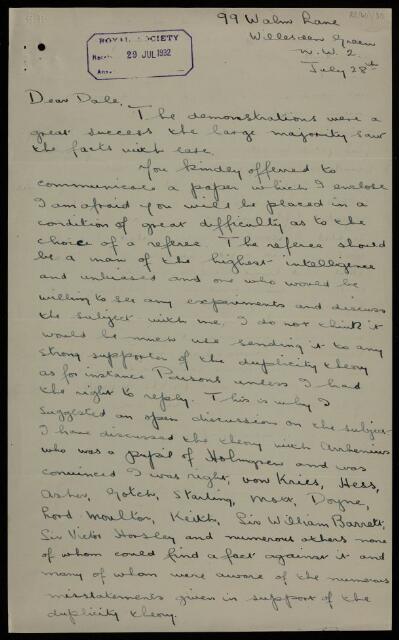 99 Walm Lane
Willesden Green
N.W. 2.
July 28th
ROYAL SOCIETY
29 JUL 1932
Dear Dale,
The demonstrations were a
great success the large majority saw
the facts with ease.
You kindly offered to
communicate a paper which I enclose
I am afraid you will be placed in a
condition of great difficulty as to the
choice of a referee. The referee should
be a man of the highest intelligence
and unbiased and one who would be
willing to see any experiments and discuss
the subject with me. I do not think it
would be much use sending it to any
strong supporter of the duplicity theory
as for instance Parsons unless I had
the right to reply. This is why I
suggested an open discussion on the subject.
I have discussed the theory with Arrhenius
who was a pupil of Holmgren and was
convinced I was right, von Kries, Hess,
Asher, Gotch, Starling, Mott, Doyne,
Lord Moulton, Keith, Sir William Barrett,
Sir Victor Horsley and numerous others none
of whom could find a fact against it and
many of whom were aware of the numerous
misstatements given in support of the
duplicity theory.